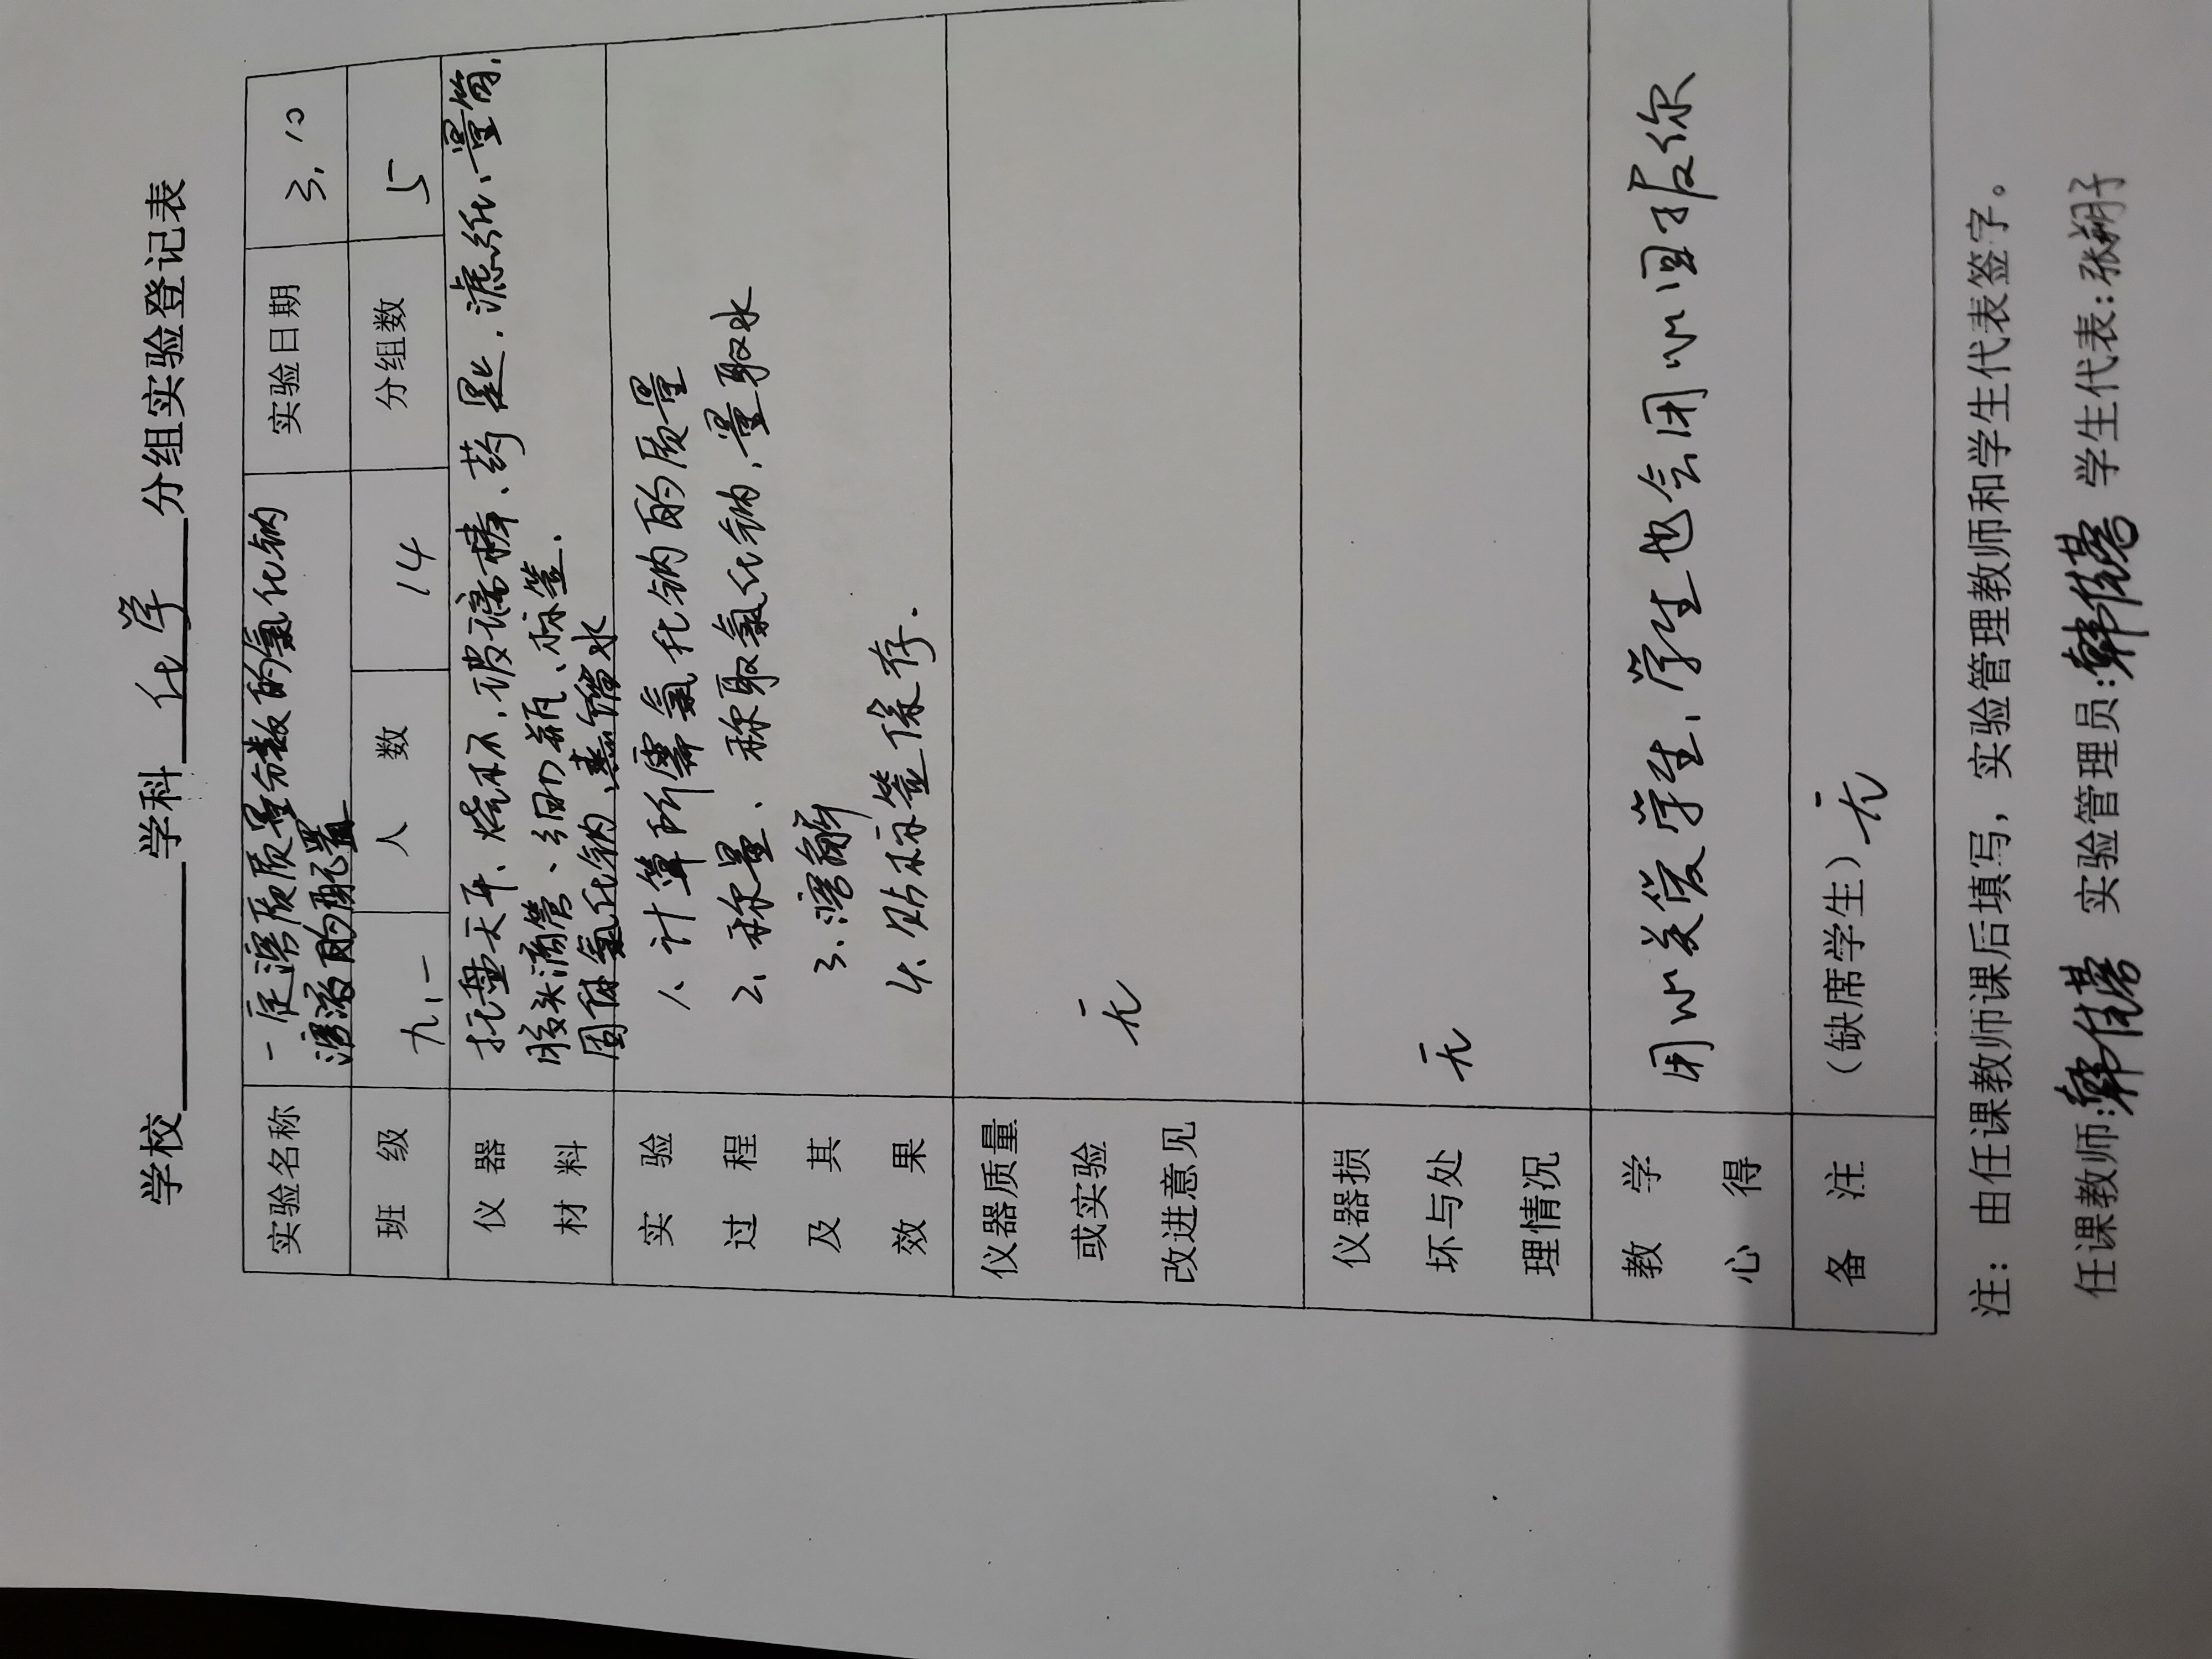 学校 学科 化学 分组实验登记表
实验名称 一定溶质质量分数的氯化钠 实验日期 3.10
溶液的配置
班级 九.一 人数 14 分组数 5
仪器 托盘天平、烧杯、玻璃棒、药匙、滤纸、量筒、
材料 胶头滴管、细口瓶、标签.
固体氯化钠、蒸馏水
实验 1、计算所需氯化钠的质量
过程 2、称量、称取氯化钠、量取水
及其 3、溶解
效果 4、贴标签保存.
仪器质量
或实验 无
改进意见
仪器损
坏与处 无
理情况
教学 用心关爱学生,学生也会用心回报你
心得
备注 (缺席学生) 无
注：由任课教师课后填写，实验管理教师和学生代表签字。
任课教师: 韩佳 实验管理员: 韩佳 学生代表: 张